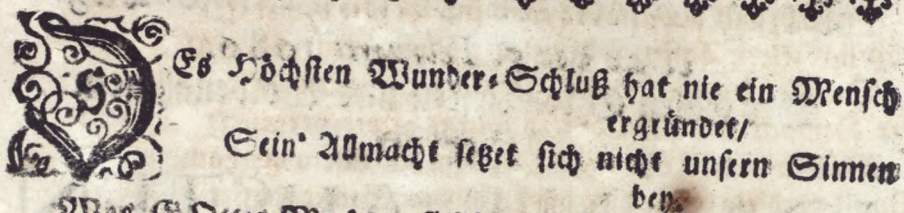 DEs Höchsten Wunder-Schluß hat nie ein Mensch
ergründet/
Sein' Allmacht setzet sich nicht unsern Sinnen
bey.